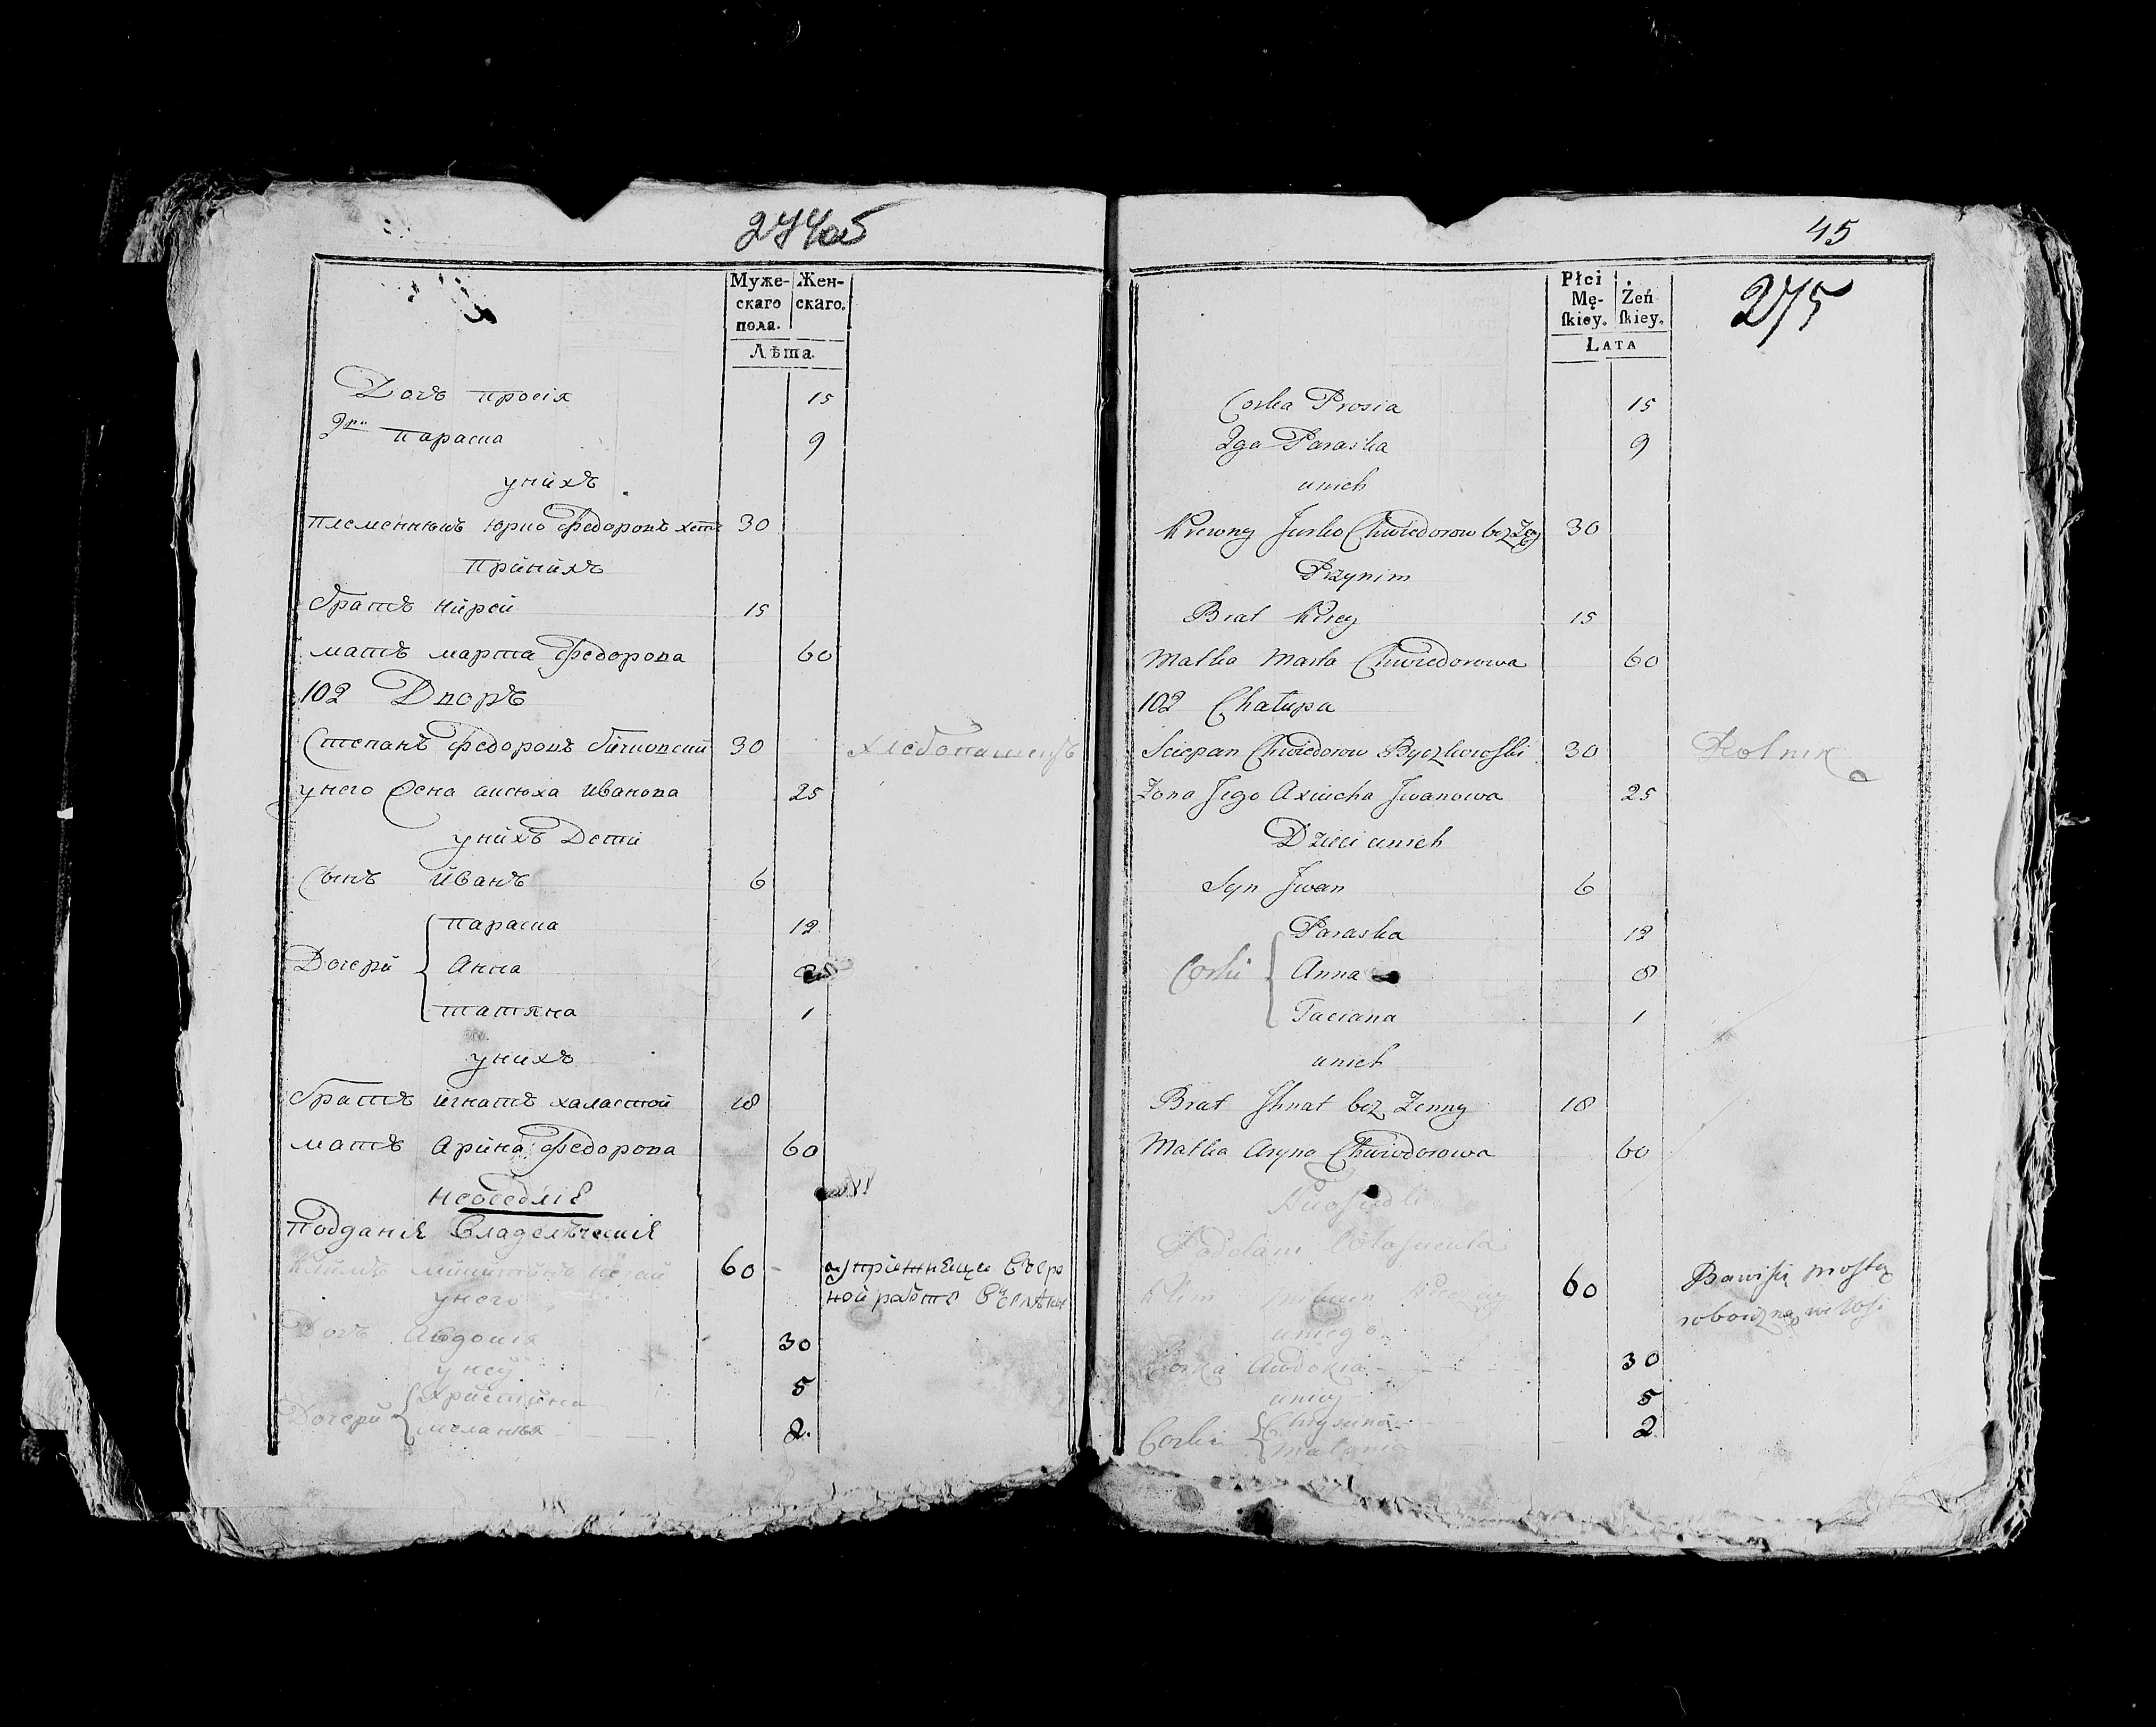 274об
Муже-
скаго
пола.
Жен-
скаго.
Лѣта
Дочъ просія 15
2ря параска 9
унихъ
племенникъ юрко Федоровъ хост 30
принихъ
братъ кирей 15
матъ марта Федорова 60
102 Дворъ
Степанъ Федоровъ бичковскій 30 хлебопашецъ
унего Жена аксюха иванова 25
унихъ Дети
Сынъ иванъ 6
параска 12
Дочери Анна
татяна 1
унихъ
братъ игнатъ халастой 18
матъ арина Федорова 60
неоседліе
подданіе владелческіе
Климъ 60
ной работе
унего
Дочъ авдокія 30
уней
христина 5
Дочери
меланья 2
45
275
Płci
Mę-
ſkiey.
Żeń
ſkiey.
LATA
Corka Prosia 15
2ga Paraska 9
unich
Krewny Jurko Chwiedorow bez Ży 30
Przynim
Brat Kirey 15
Matka Marta Chwiedorowa 60
102 Chałupa
Sciepan Chwiedorow Byczkowſki 30 Rolnik
Zona Jego Axiucha Jwanowa 25
Dzieci unich
Syn Jwan 6
Paraska 12
Corki Anna 8
Taciana 1
unich
Brat Jhnat bez Zenny 18
Matka Aryna Chwiedorowa 60
Nieosiedli
Poddani
Klim 60 Bawiſię proſtą
robocizną we Wsi
uniego
Corka Awdokia 30
uniey
Chrysina 5
Corki
Małania 2